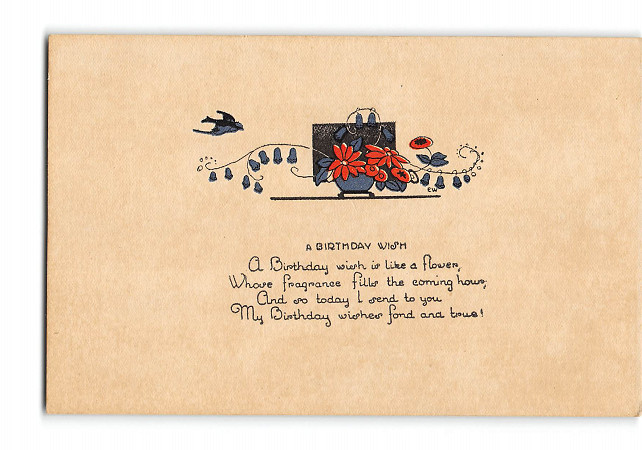 EW
A BIRTHDAY WISH
A Birthday wish is like a flower,
Whose fragrance fills the coming hour;
And so today I send to you
My Birthday wishes fond and true!